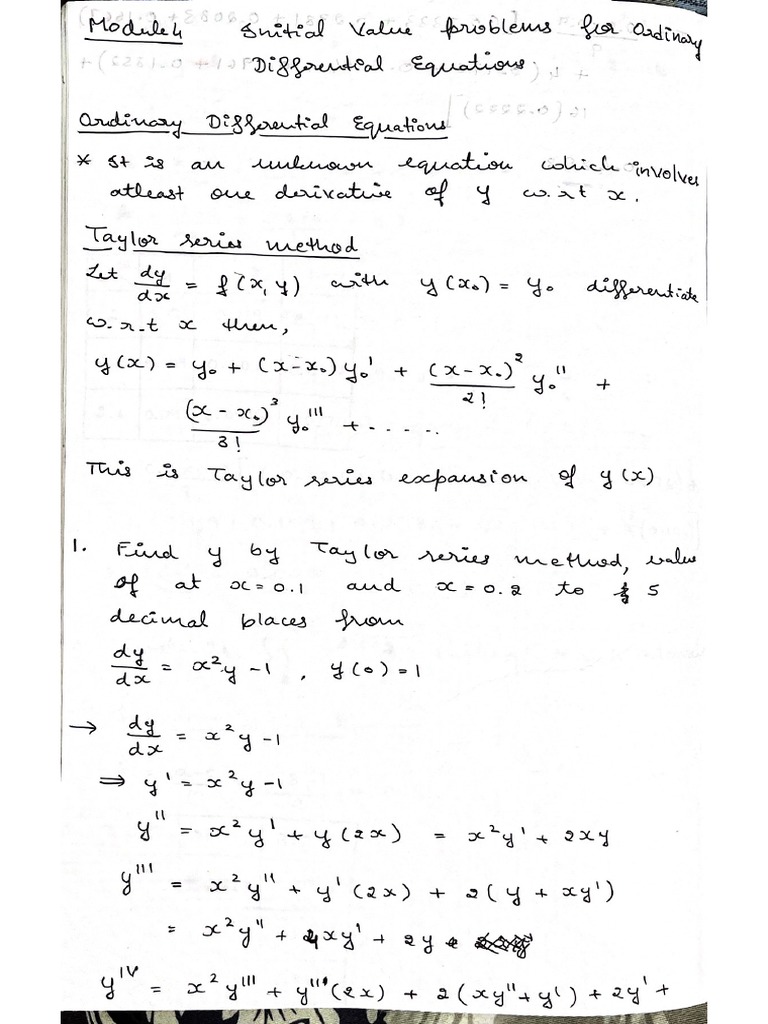 Module 4 Initial Value problems for Ordinary
Differential Equations
Ordinary Differential Equations
* It is an unknown equation which involves
atleast one derivative of y w.r.t x.
Taylor series method
Let dy/dx = f(x, y) with y(x₀) = y₀ differentiate
w.r.t x then,
y(x) = y₀ + (x-x₀) y₀' + (x-x₀)²/2! y₀'' +
(x-x₀)³/3! y₀''' + .....
This is Taylor series expansion of y(x)
1. Find y by Taylor series method, value
of at x=0.1 and x=0.2 to 5
decimal places from
dy/dx = x²y-1, y(0)=1
→ dy/dx = x²y-1
⇒ y' = x²y-1
y'' = x²y' + y(2x) = x²y' + 2xy
y''' = x²y'' + y'(2x) + 2(y + xy')
= x²y'' + 4xy' + 2y
yᴵⱽ = x²y''' + y''(2x) + 2(xy''+y') + 2y' +